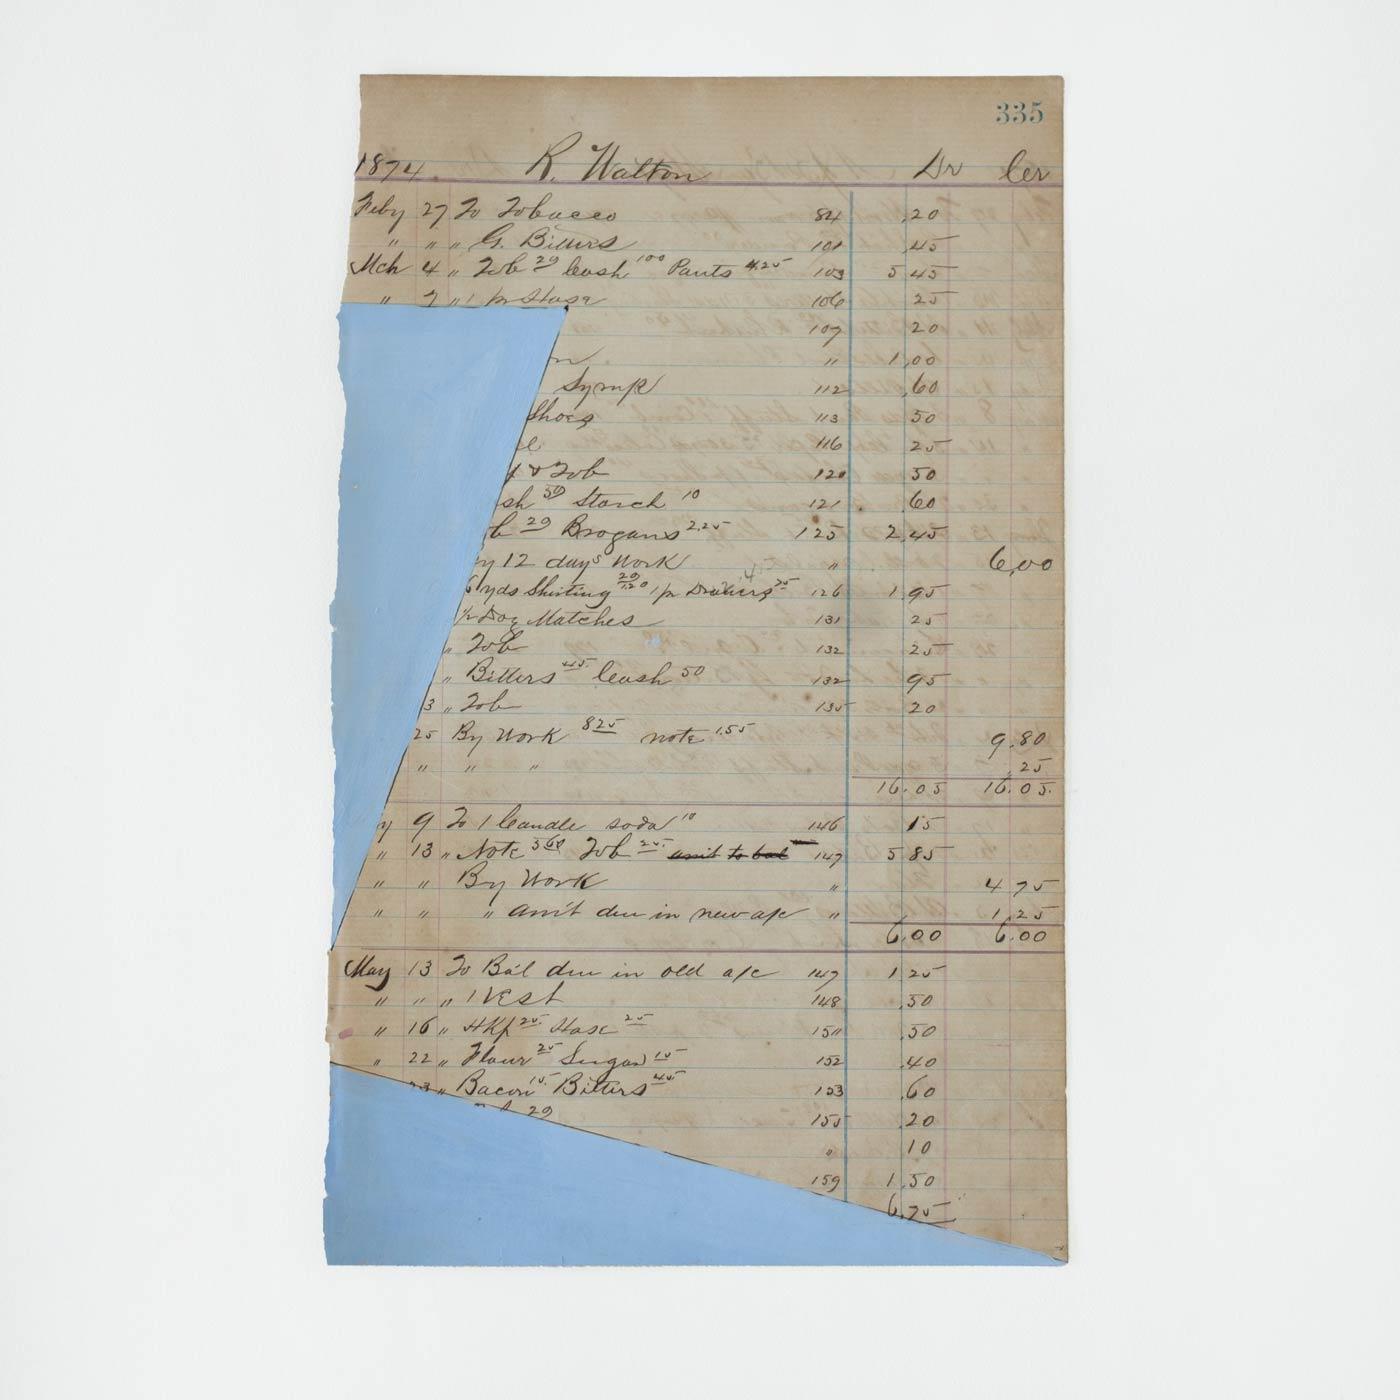 335
1874. R. Walton Dr Cr
Feby 27 To Tobacco 84 .20
" " " G. Bitters 101 .45
Mch 4 " Tob 20 Cash 100 Pants 4.25 103 5 45
" 7 " 1 pr Hose 106 25
107 20
" 1.00
Syrup 112 .60
Shoes 113 50
116 25
& Tob 120 50
sh 50 Starch 10 121 .60
b 20 Brogans 2.25 125 2.45
By 12 days Work " 6.00
6 yds Shirting 20 1.20 1 pr Drawers 75 126 1.95
½ Doz Matches 131 25
" Tob 132 25
" Bitters 45 Cash 50 132 95
3 " Tob 135 20
25 By Work 825 note 1.55 9.80
" " " .25
16.05 16.05.
y 9 To 1 Candle soda 10 146 15
" 13 " Note 560 Tob 25. amt to bal 147 5 85
" " By Work " 4 75
" " " am't due in new a/c " 1.25
6.00 6.00
May 13 To Bal due in old a/c 147 1 25
" " " 1 Vest 148 .50
" 16 " Hkf 25. Hose 25 150 .50
" 22 " Flour 25 Sugar 15 152 .40
23 " Bacon 15. Bitters 45 153 .60
20 155 .20
" 10
159 1.50
6.75